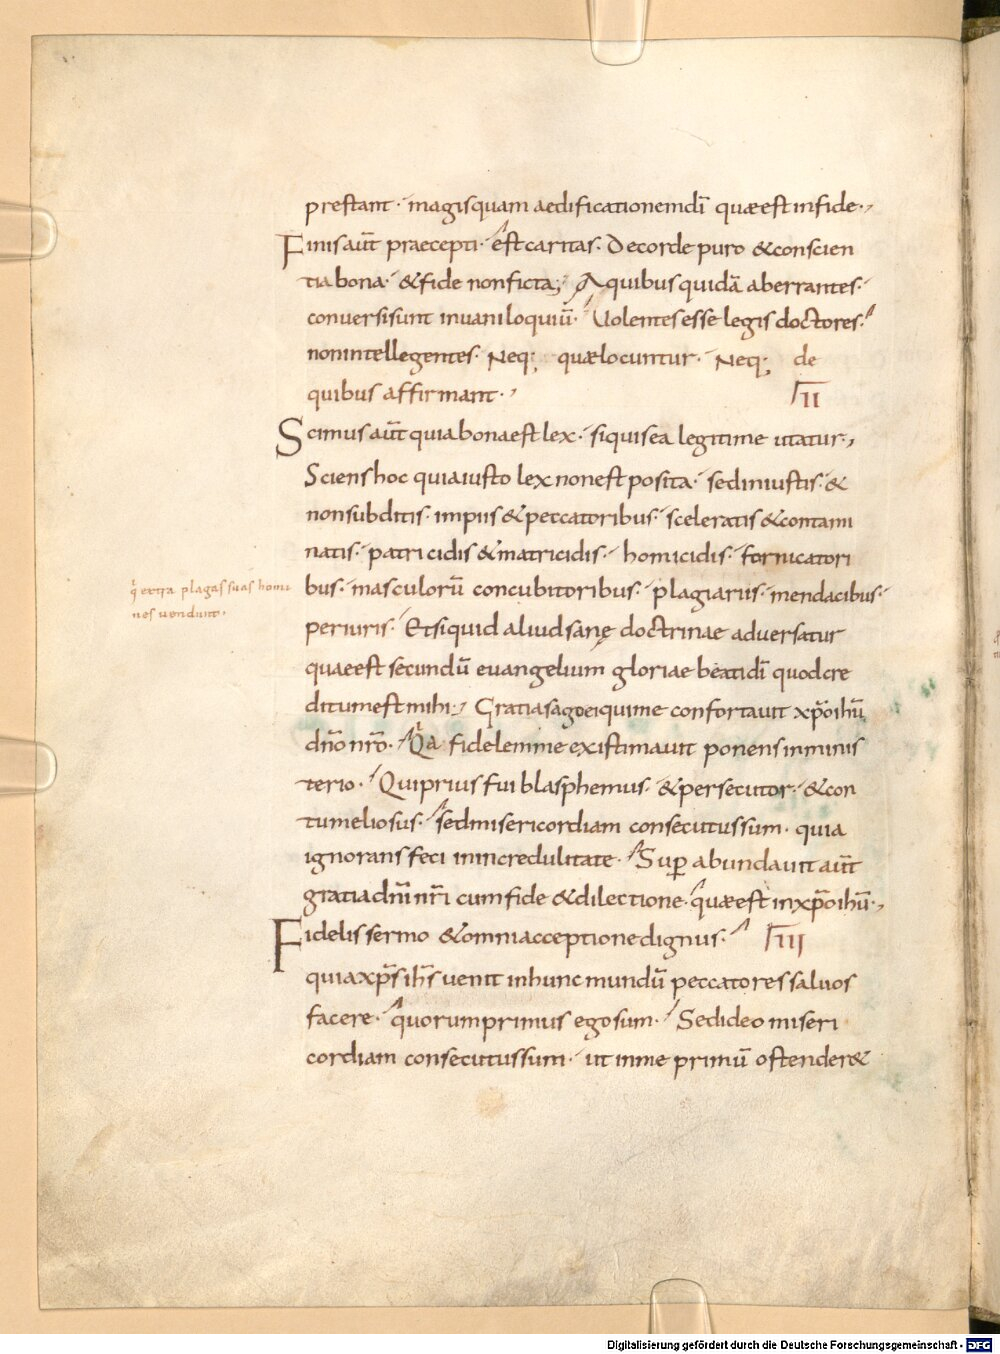 prestant· magisquam aedificationemdī quæestinfide·,
Finisaūt praecepti· est caritas· Decorde puro &conscien
tiabona· &fide nonficta; Aquibus quidā aberrantes·
conversisunt invaniloquiū· Uolentesesse legis doctores·
nonintellegentes· Neq; quælocuntur· Neq; de
quibus affirmant·,
II
Scimus aūt quiabonaest lex· siquisea legitime utatur·,
Scienshoc quiaiusto lex nonest posita· sediniustis· &
nonsubditis· impiis &peccatoribus· sceleratis &contami
natis· patricidis &matricidis· homicidis· fornicatori
bus· masculorū concubitoribus· plagiariis· mendacibus·
q̇ extra plagas suas homi
nes vendunt·
periuris· Etsiquid aliudsanę doctrinae adversatur
quaeest secundū evangelium gloriae beatidī quodcre
ditumest mihi·, Gratiasagoeiquime confortavit xp̄oihū
dn̄o nr̄o· Qa fidelemme existimavit ponensinminis
terio· Quiprius fui blasphemus· &persecutor· &con
tumeliosus· sedmisericordiam consecutussum· quia
ignorans feci inincredulitate· Sup̱ abundavit aūt
gratiadn̄inr̄i cumfide &dilectione· quæest inxp̄oihū·,
Fidelis sermo &omniacceptionedignus·
III
quiaxp̄s ih̄s venit inhunc mundū peccatores salvos
facere· quorumprimus egosum· Sedideo miseri
cordiam consecutussum· ut inme primū ostender&
Digitalisierung gefördert durch die Deutsche Forschungsgemeinschaft - DFG